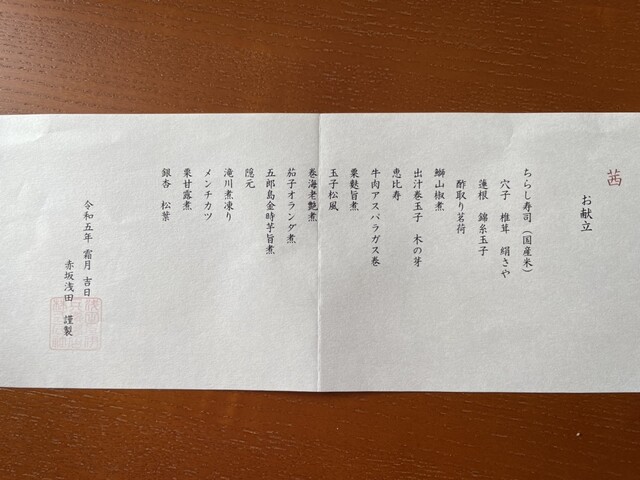 茜
お献立
ちらし寿司（国産米）
穴子　椎茸　絹さや
蓮根　錦糸玉子
酢取り茗荷
鰤山椒煮
出汁巻玉子　木の芽
恵比寿
牛肉アスパラガス巻
粟麩旨煮
玉子松風
巻海老艶煮
茄子オランダ煮
五郎島金時芋旨煮
隠元
滝川煮凍り
メンチカツ
栗甘露煮
銀杏　松葉
令和五年　霜月　吉日
赤坂浅田　謹製